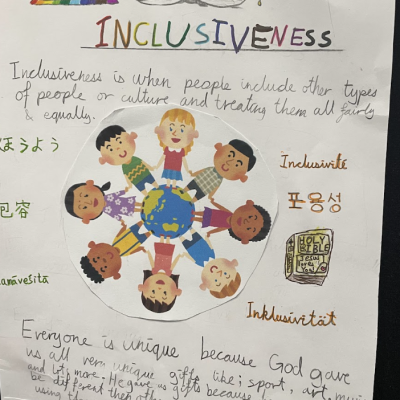 INCLUSIVENESS
Inclusiveness is when people include other types
of people or culture and treating them all fairly
& equally.
ほうよう
Inclusivité
포용성
包容
HOLY
BIBLE
Jesus
loves
You
amāveśitā
Inklusivität
Everyone is unique because God gave
us all very unique gifts like; sport, art, music
and lot more. He gave us gifts because
be different then
using the